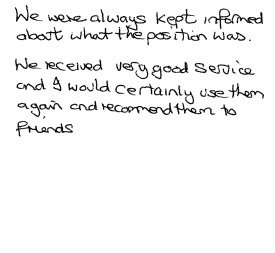 We were always kept informed
about what the position was.
We received very good service
and I would certainly use them
again and recommend them to
friends